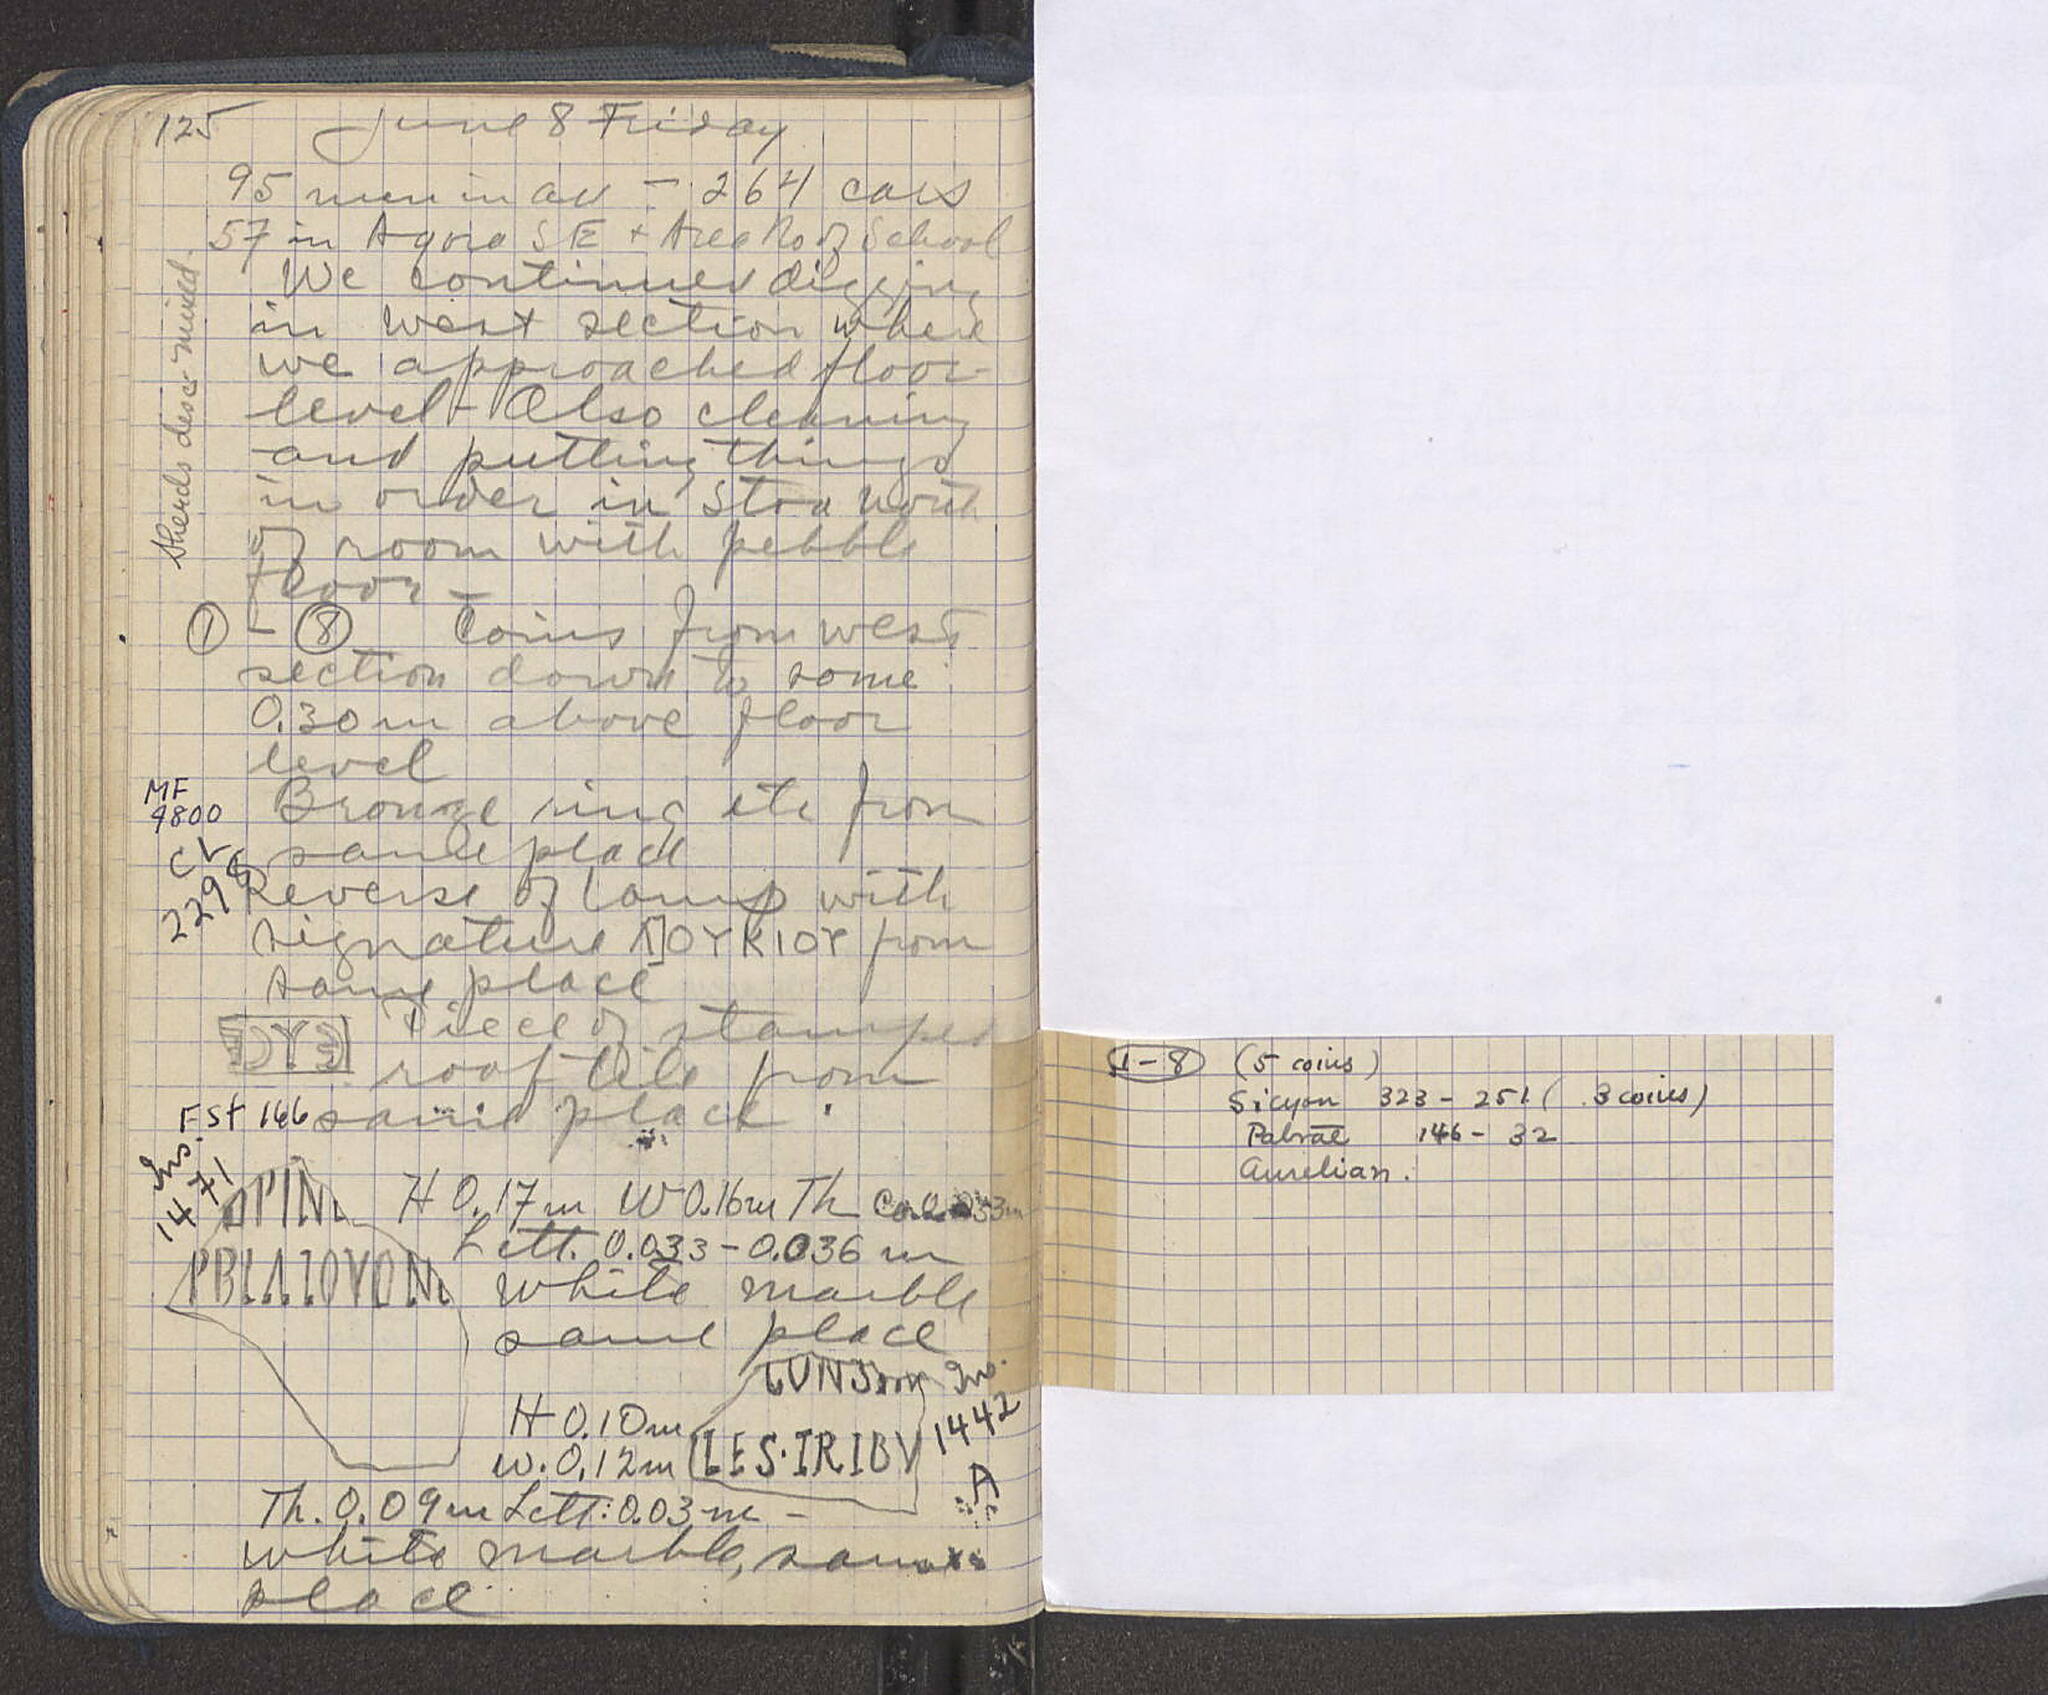 125 June 8 Friday
95 men in all – 264 cars
57 in Agora SE + Area No of School
We continued digging
in west section where
we approached floor
level – Also cleaning
and putting things
in order in Stoa north
of room with pebble
floor –
① – ⑧ Coins from west
section down to some
0.30 m above floor
level
MF
9800
Bronze ring etc from
same place
CL
2298
Reverse of lamp with
signature Λ]ΟΥΚΙΟΥ from
same place
Piece of stamped
roof tile from
FSt 166 same place
Ins.
1471
H 0.17 m W 0.16 m Th
Lett. 0.033 – 0.036 m
White marble
same place
H 0.10 m
W. 0.12 m
LES·TRIBV
1442
A
Th. 0.09 m Lett: 0.03 m –
white marble, same
place
Sherds desc mixed
1–8 (5 coins)
Sicyon 323 – 251 (3 coins)
Patrae 146 – 32
Aurelian.